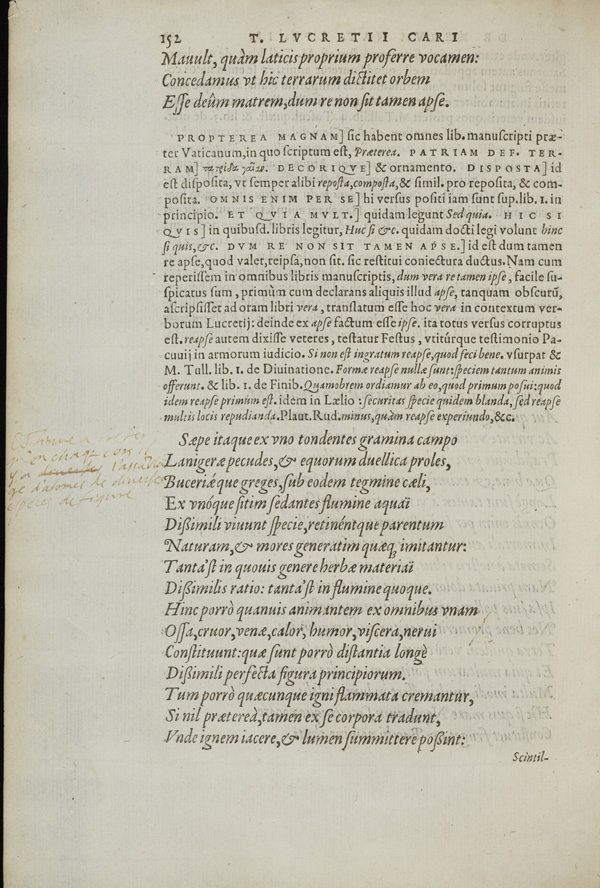 152 T. LVCRETII CARI
Mauult, quàm laticis proprium proferre vocamen:
Concedamus vt hic terrarum dictitet orbem
Esse deûm matrem, dum re non sit tamen apse.
PROPTEREA MAGNAM] sic habent omnes lib. manuscripti præ-
ter Vaticanum, in quo scriptum est, Præterea. PATRIAM DEF. TER-
RAM] DECORIQVE] & ornamento. DISPOSTA] id
est disposita, vt semper alibi reposta, composta, & simil. pro reposita, & com-
posita. OMNIS ENIM PER SE] hi versus positi iam sunt sup. lib. 1. in
principio. ET QVIA MVLT.] quidam legunt Sed quia. HIC SI
QVIS] in quibusd. libris legitur, Huc si &c. quidam docti legi volunt hinc
si quis, &c. DVM RE NON SIT TAMEN APSE.] id est dum tamen
re apse, quod valet, reipsa, non sit. sic restitui coniectura ductus. Nam cum
reperissem in omnibus libris manuscriptis, dum vera re tamen ipse, facile su-
spicatus sum, primùm cum declarans aliquis illud apse, tanquam obscurũ,
ascripsisset ad oram libri vera, translatum esse hoc vera in contextum ver-
borum Lucretij: deinde ex apse factum esse ipse. ita totus versus corruptus
est. reapse autem dixisse veteres, testatur Festus, vtitúrque testimonio Pa-
cuuij in armorum iudicio. Si non est ingratum reapse, quod feci bene. vsurpat &
M. Tull. lib. 1. de Diuinatione. Formæ reapse nullæ sunt: speciem tantum animis
offerunt. & lib. 1. de Finib. Quamobrem ordiamur ab eo, quod primum posui: quod
idem reapse primum est. idem in Lælio: securitas specie quidem blanda, sed reapse
multis locis repudianda. Plaut. Rud. minus, quàm reapse experiundo, &c.
Sæpe itaque ex vno tondentes gramina campo
Lanigeræ pecudes, & equorum duellica proles,
Buceriǽque greges, sub eodem tegmine cæli,
Ex vnóque sitim sedantes flumine aquaï
Dissimili viuunt specie, retinéntque parentum
Naturam, & mores generatim quæq; imitantur:
Tanta'st in quouis genere herbæ materiaï
Dissimilis ratio: tanta'st in flumine quoque.
Hinc porrò quanuis animantem ex omnibus vnam
Ossa, cruor, venæ, calor, humor, viscera, nerui
Constituunt: quæ sunt porrò distantia longè
Dissimili perfecta figura principiorum.
Tum porrò quæcunque igni flammata cremantur,
Si nil prætereà, tamen ex se corpora tradunt,
Vnde ignem iacere, & lumen summittere possint:
Scintil-
en chaque
especes de figure